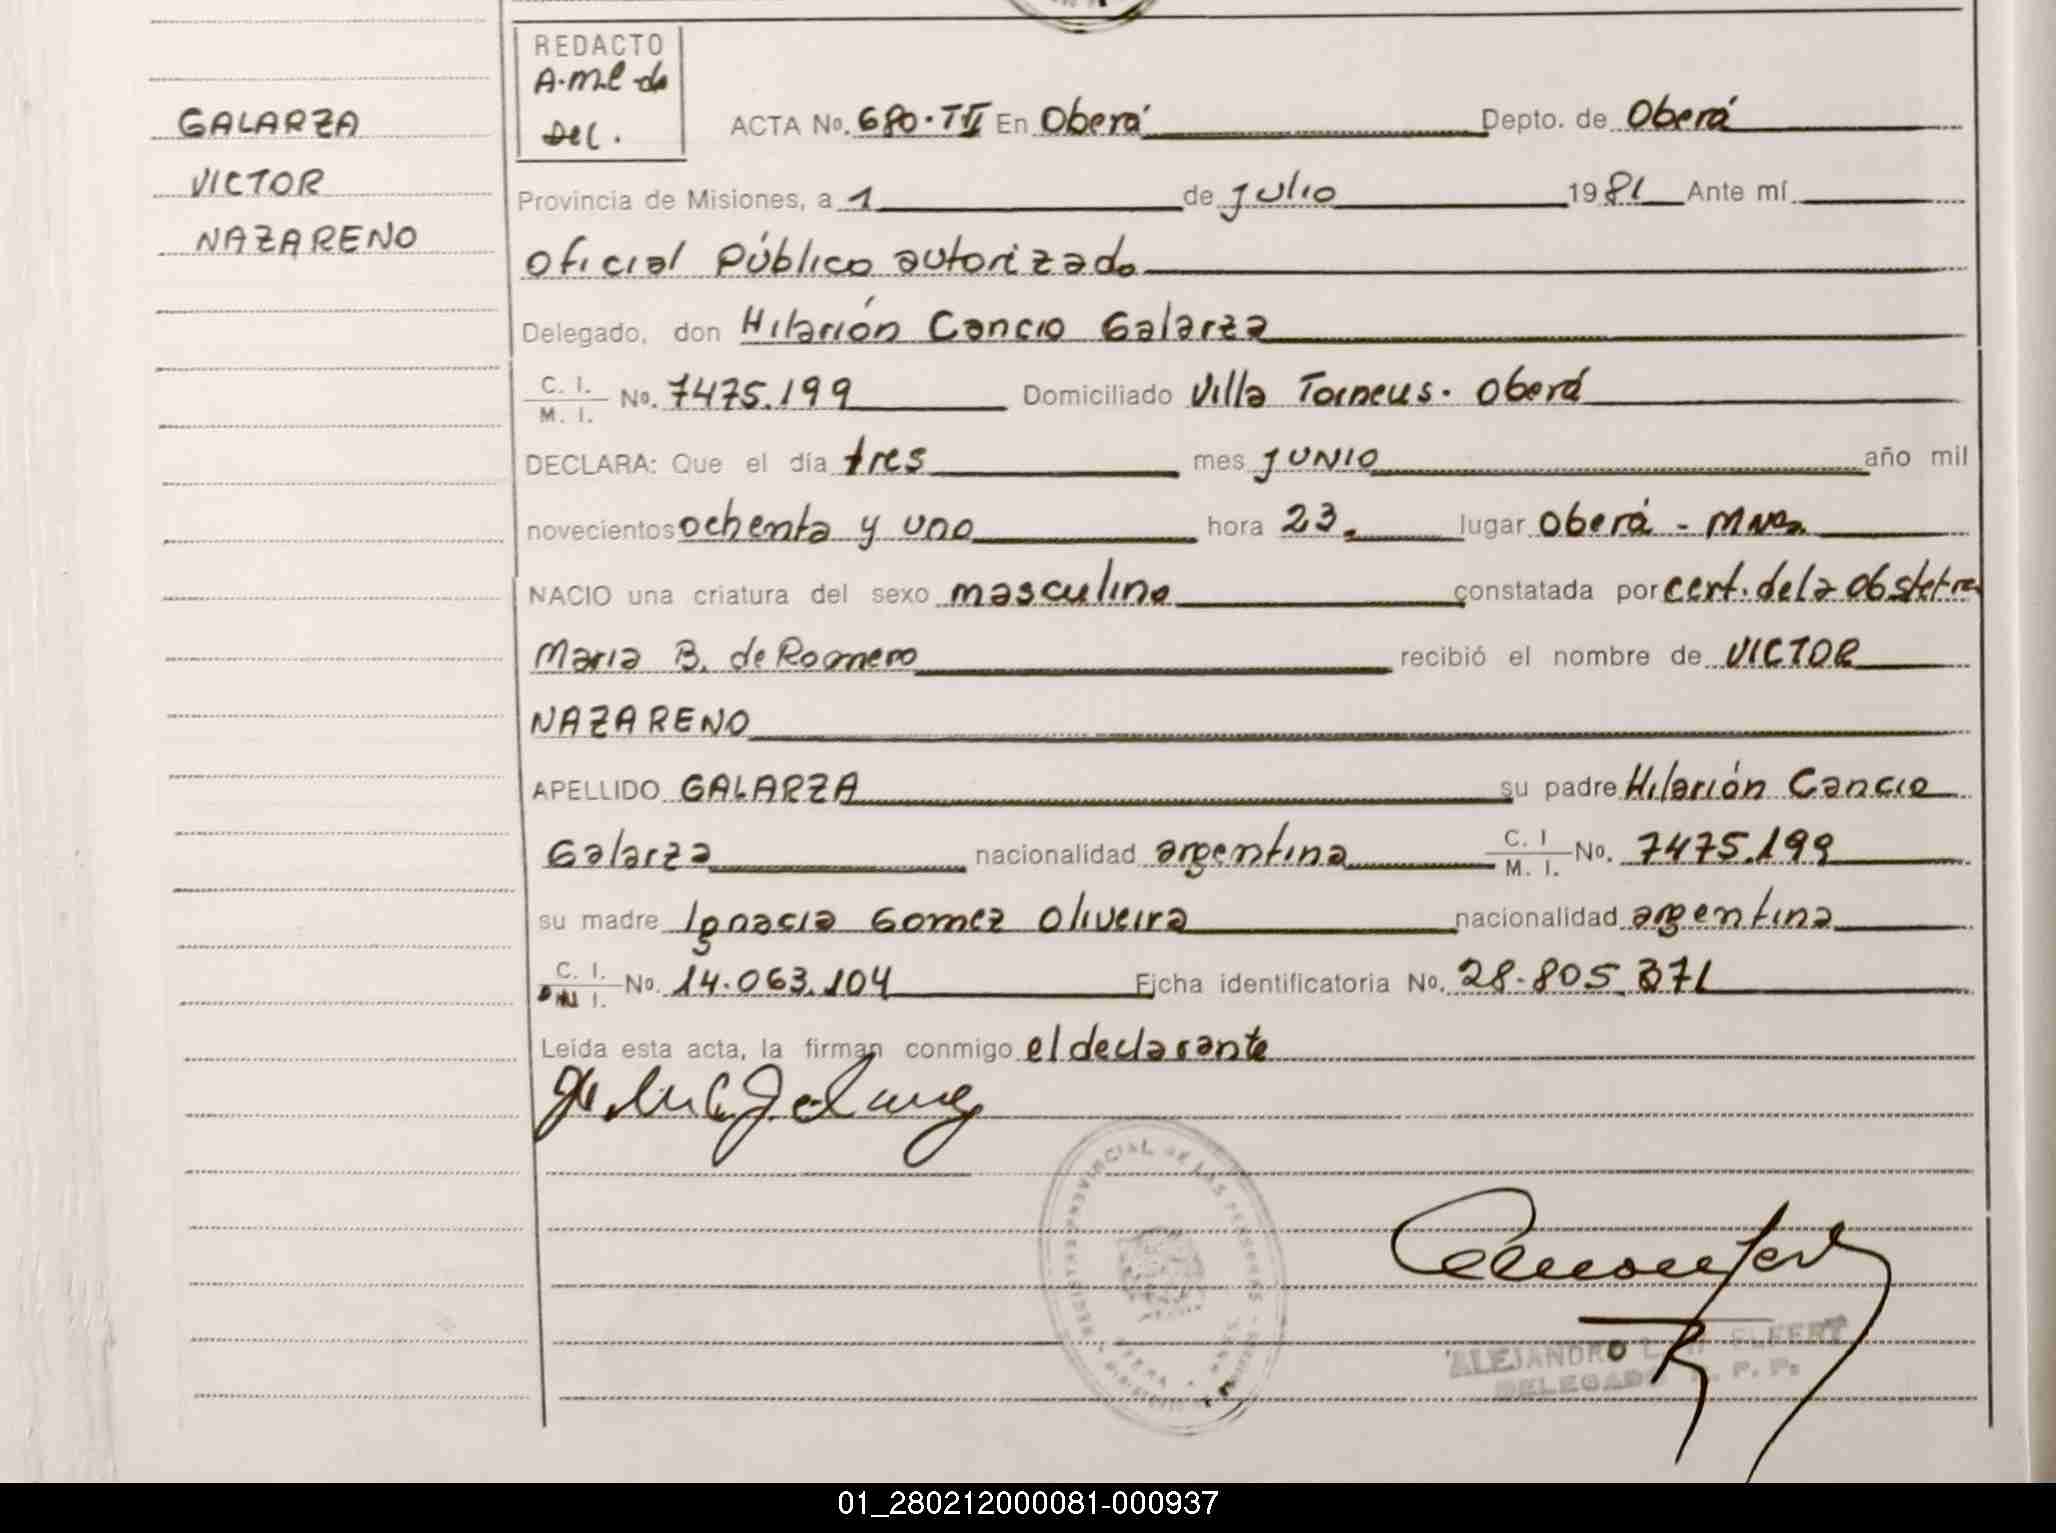 GALARZA
VICTOR
NAZARENO
REDACTO
A.M.L de
Del.
ACTA No. 680. T VI En Oberá Depto. de Oberá
Provincia de Misiones, a 1 de Julio 1981 Ante mí
Oficial Público autorizado
Delegado, don Hilarión Cancio Galarza
C. I. / M. I. No. 7475.199 Domiciliado Villa Torneus. Oberá
DECLARA: Que el día tres mes JUNIO año mil
novecientos ochenta y uno hora 23. lugar Oberá - Mnes.
NACIO una criatura del sexo masculino constatada por cert. de la Obstetra
Maria B. de Romero recibió el nombre de VICTOR
NAZARENO
APELLIDO GALARZA su padre Hilarión Cancio
Galarza nacionalidad argentina C. I / M. I. No. 7475.199
su madre Ignacia Gomez Oliveira nacionalidad argentina
C. I. / I. No. 14.063.104 Ficha identificatoria No. 28.805.371
Leída esta acta, la firman conmigo el declarante
REGISTRO PROVINCIAL DE LAS PERSONAS
ALEJANDRO
DELEGADO R. P. P.
01_280212000081-000937